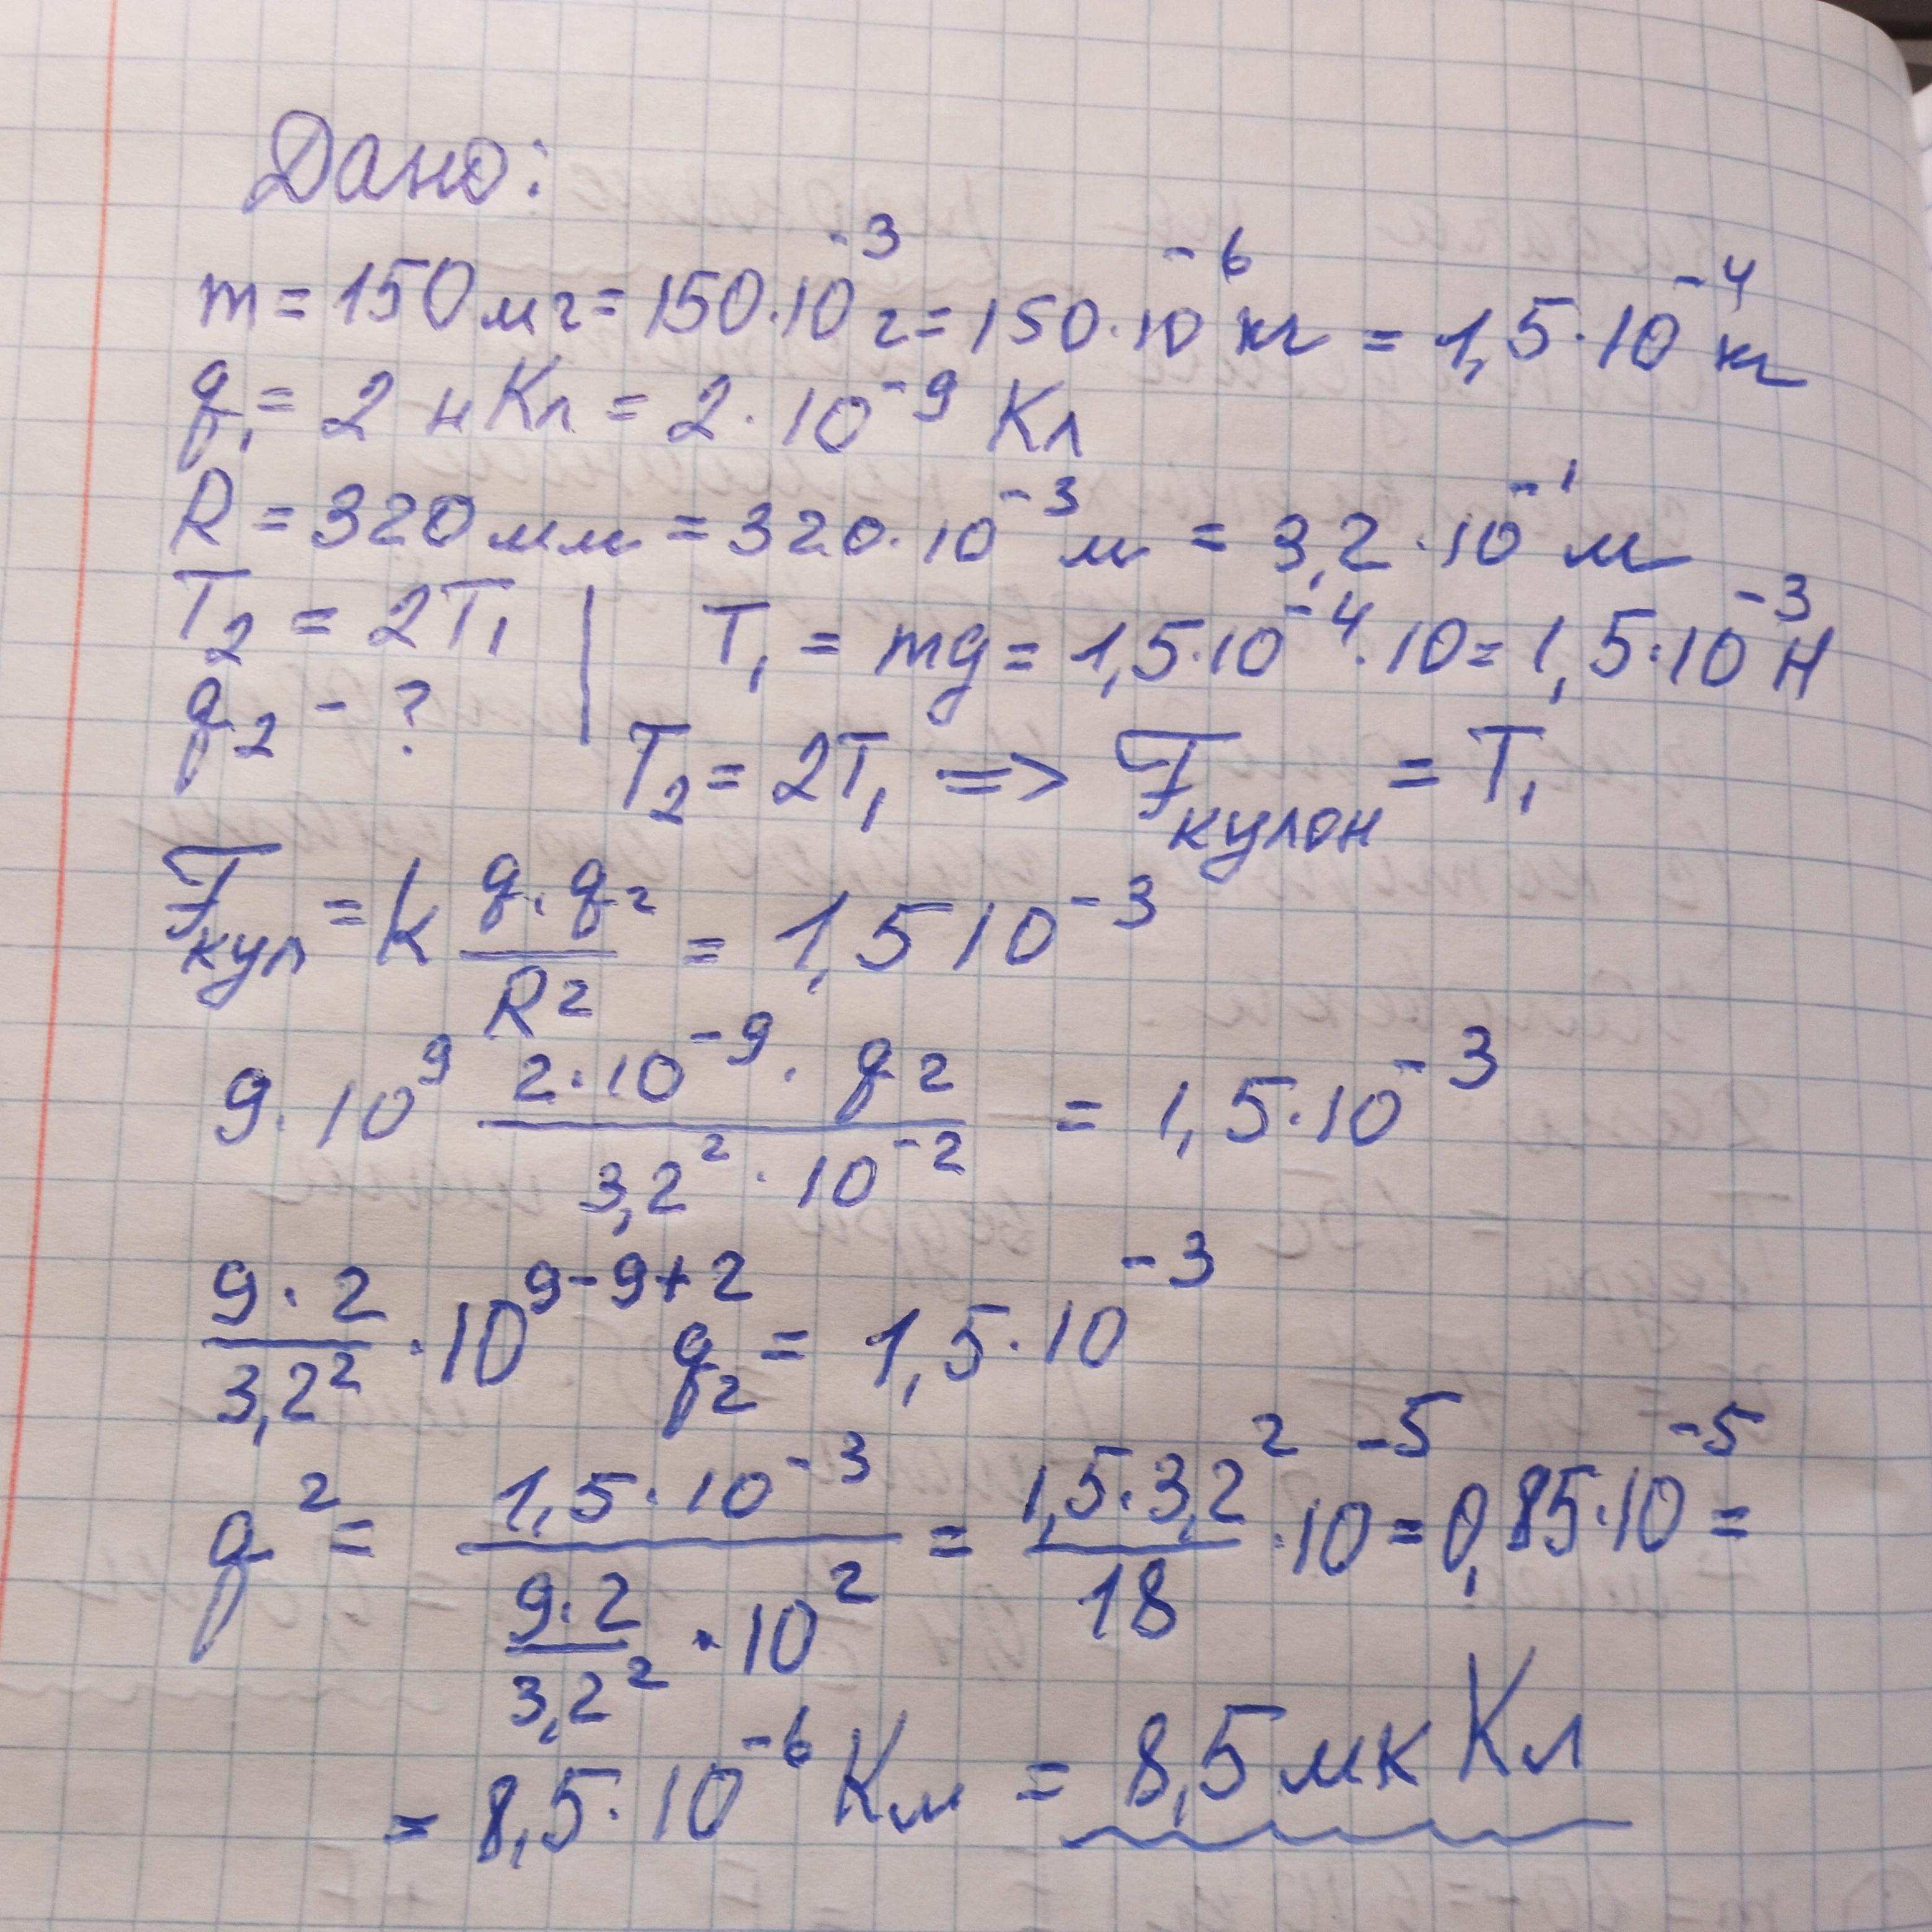 Дано:
m = 150 мг = 150·10⁻³ г = 150·10⁻⁶ кг = 1,5·10⁻⁴ кг
q₁ = 2 нКл = 2·10⁻⁹ Кл
R = 320 мм = 320·10⁻³ м = 3,2·10⁻¹ м
T₂ = 2T₁ | T₁ = mg = 1,5·10⁻⁴·10 = 1,5·10⁻³ Н
q₂ - ?
T₂ = 2T₁ => Fкулон = T₁
Fкул = k q₁q₂/R² = 1,5 10⁻³
9·10⁹ 2·10⁻⁹·q₂/3,2²·10⁻² = 1,5·10⁻³
9·2/3,2² ·10⁹⁻⁹⁺² q₂ = 1,5·10⁻³
q² = 1,5·10⁻³/(9·2/3,2² · 10²) = 1,5·3,2²/18 ·10⁻⁵ = 0,85·10⁻⁵ =
= 8,5·10⁻⁶ Кл = 8,5 мкКл